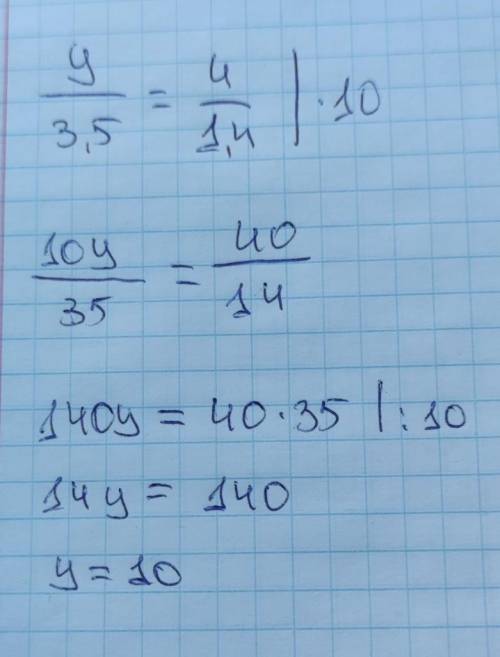 y/3,5 = 4/1,4 | · 10
10y/35 = 40/14
140y = 40 · 35 | : 10
14y = 140
y = 10